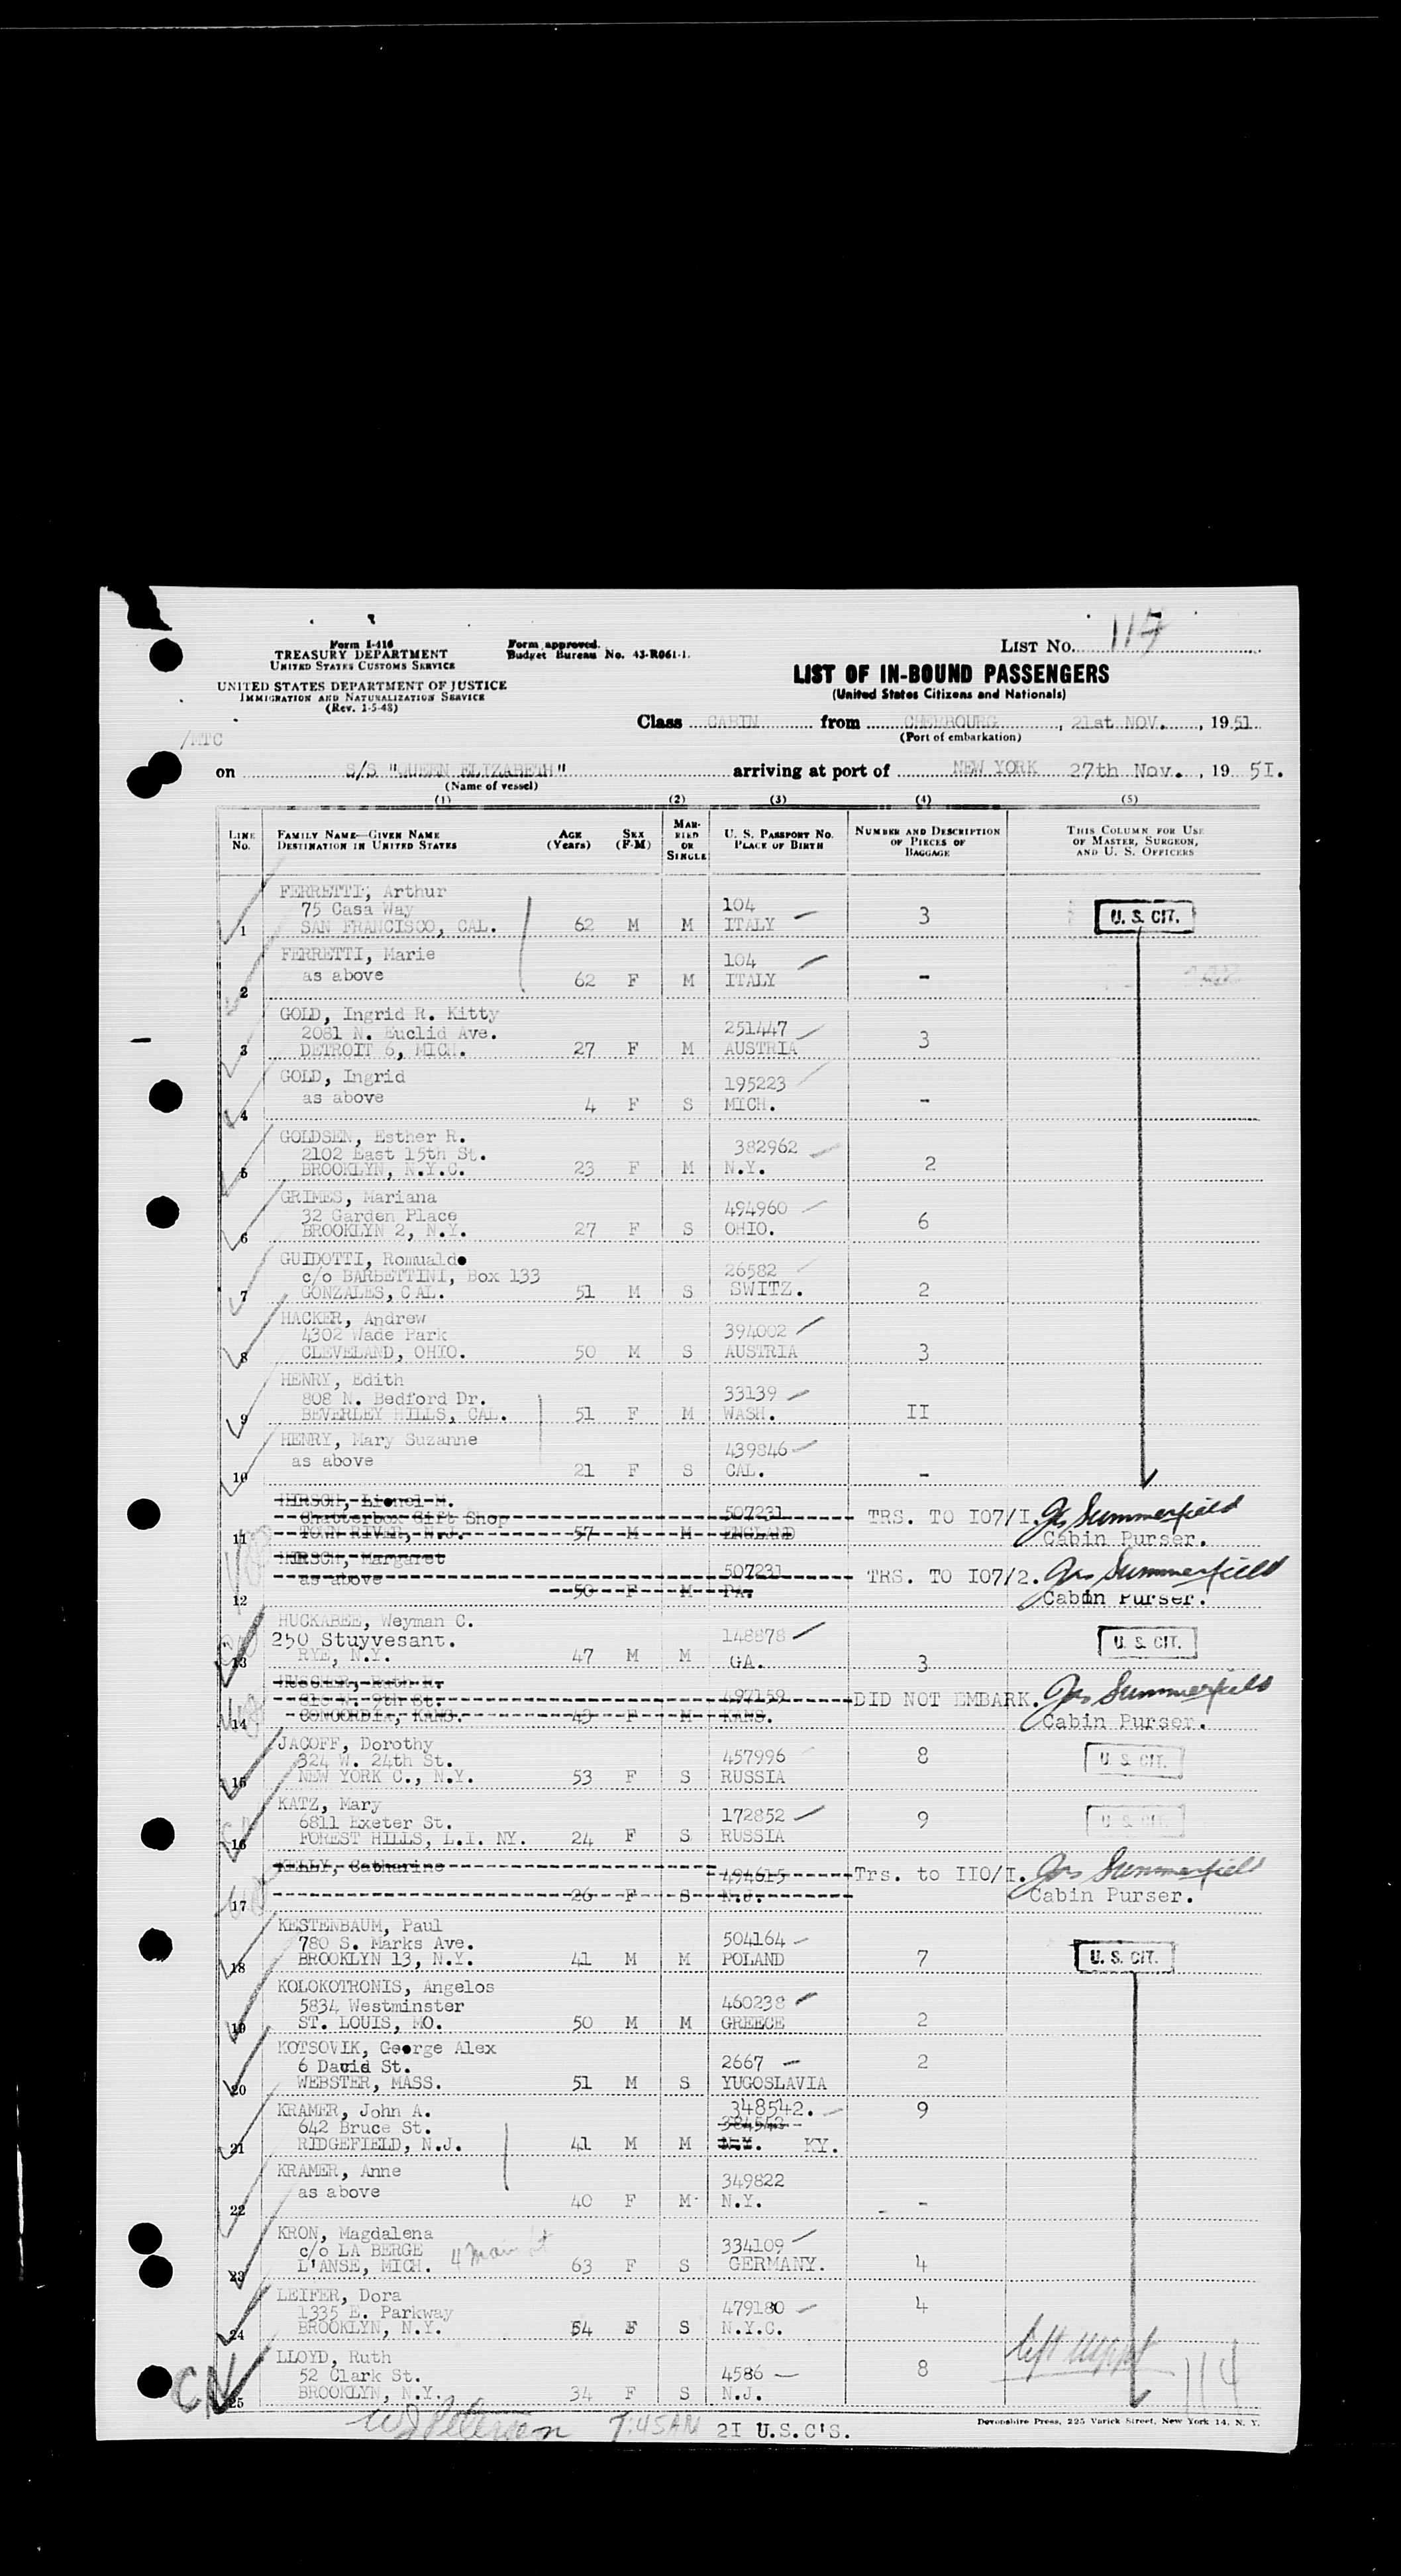 Form I-416
TREASURY DEPARTMENT
UNITED STATES CUSTOMS SERVICE
UNITED STATES DEPARTMENT OF JUSTICE
IMMIGRATION AND NATURALIZATION SERVICE
(Rev. 1-5-48)
Form approved.
Budget Bureau No. 43-R061-1.
LIST No. 114
LIST OF IN-BOUND PASSENGERS
(United States Citizens and Nationals)
Class CABIN from CHERBOURG, 21st NOV., 1951
(Port of embarkation)
/MTC
on S/S "QUEEN ELIZABETH" arriving at port of NEW YORK 27th Nov., 19 5I.
(Name of vessel)
(1) (2) (3) (4) (5)
LINE No. FAMILY NAME—GIVEN NAME DESTINATION IN UNITED STATES AGE (Years) SEX (F-M) MARRIED OR SINGLE U. S. PASSPORT No. PLACE OF BIRTH NUMBER AND DESCRIPTION OF PIECES OF BAGGAGE THIS COLUMN FOR USE OF MASTER, SURGEON, AND U. S. OFFICERS
FERRETTI, Arthur
75 Casa Way 104 3 U. S. CIT.
1 SAN FRANCISCO, CAL. 62 M M ITALY
FERRETTI, Marie 104
as above
2 62 F M ITALY -
GOLD, Ingrid R. Kitty
2081 N. Euclid Ave. 251447 3
3 DETROIT 6, MICH. 27 F M AUSTRIA
GOLD, Ingrid 195223
as above
4 4 F S MICH. -
GOLDSEN, Esther R.
2102 East 15th St. 382962
5 BROOKLYN, N.Y.C. 23 F M N.Y. 2
GRIMES, Mariana
32 Garden Place 494960 6
6 BROOKLYN 2, N.Y. 27 F S OHIO.
GUIDOTTI, Romualdo
c/o BARBETTINI, Box 133 26582
7 GONZALES, CAL. 51 M S SWITZ. 2
HACKER, Andrew
4302 Wade Park 394002
8 CLEVELAND, OHIO. 50 M S AUSTRIA 3
HENRY, Edith
808 N. Bedford Dr. 33139
9 BEVERLEY HILLS, CAL. 51 F M WASH. II
HENRY, Mary Suzanne 439846
as above
10 21 F S CAL. -
HIRSCH, Lionel M.
Chatterbox Gift Shop 507231 TRS. TO IO7/I. Jas Summerfield
11 TOWN RIVER, N.J. 57 M M ENGLAND Cabin Purser.
HIRSCH, Margaret 507231
as above TRS. TO IO7/2. Jas Summerfield
12 50 F M PA. Cabin Purser.
HUCKABEE, Weyman C.
250 Stuyvesant. 148878 U. S. CIT.
13 RYE, N.Y. 47 M M GA. 3
HUSCHER, Ruth R.
9th St. 497159 DID NOT EMBARK. Jas Summerfield
14 CONCORDIA, KANS. 43 F M KANS. Cabin Purser.
JACOFF, Dorothy
324 W. 24th St. 457996 8 U. S. CIT.
15 NEW YORK C., N.Y. 53 F S RUSSIA
KATZ, Mary
6811 Exeter St. 172852 9 U. S. CIT.
16 FOREST HILLS, L.I. NY. 24 F S RUSSIA
KELLY, Catharine 494615 Trs. to IIO/I. Jas Summerfield
17 26 F S N.J. Cabin Purser.
KESTENBAUM, Paul
780 S. Marks Ave. 504164
18 BROOKLYN 13, N.Y. 41 M M POLAND 7 U. S. CIT.
KOLOKOTRONIS, Angelos
5834 Westminster 460238
19 ST. LOUIS, MO. 50 M M GREECE 2
KOTSOVIK, George Alex
6 David St. 2667 2
20 WEBSTER, MASS. 51 M S YUGOSLAVIA
KRAMER, John A. 348542. 9
642 Bruce St. 384542
21 RIDGEFIELD, N.J. 41 M M N.Y. KY.
KRAMER, Anne 349822
as above
22 40 F M N.Y. -
KRON, Magdalena
c/o LA BERGE 4 Main St 334109
23 L'ANSE, MICH. 63 F S GERMANY. 4
LEIFER, Dora
1335 E. Parkway 479180 4
24 BROOKLYN, N.Y. 54 F S N.Y.C.
LLOYD, Ruth
52 Clark St. 4586 8 114
25 BROOKLYN, N.Y. 34 F S N.J.
7:45AM 2I U.S.C'S.
Devonshire Press, 225 Varick Street, New York 14, N. Y.